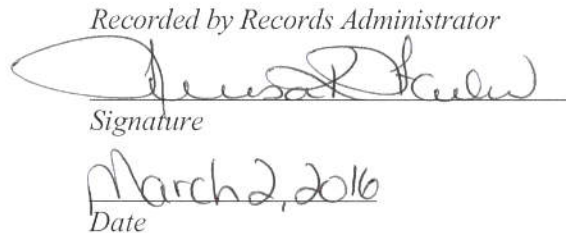 Recorded by Records Administrator
Signature
March 2, 2016
Date